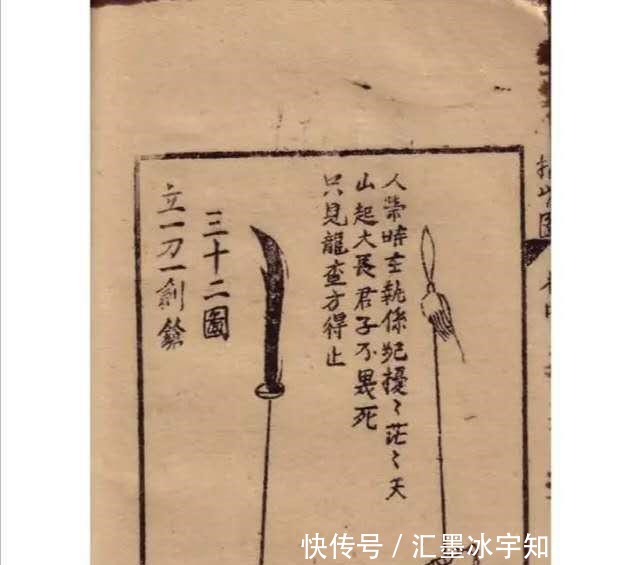 人榮時在執係犯擾〻茫〻天
山起大長君子不畏死
只見龍查方得止
三十二圖
立一刀一鎗
快传号 / 汇墨冰宇知